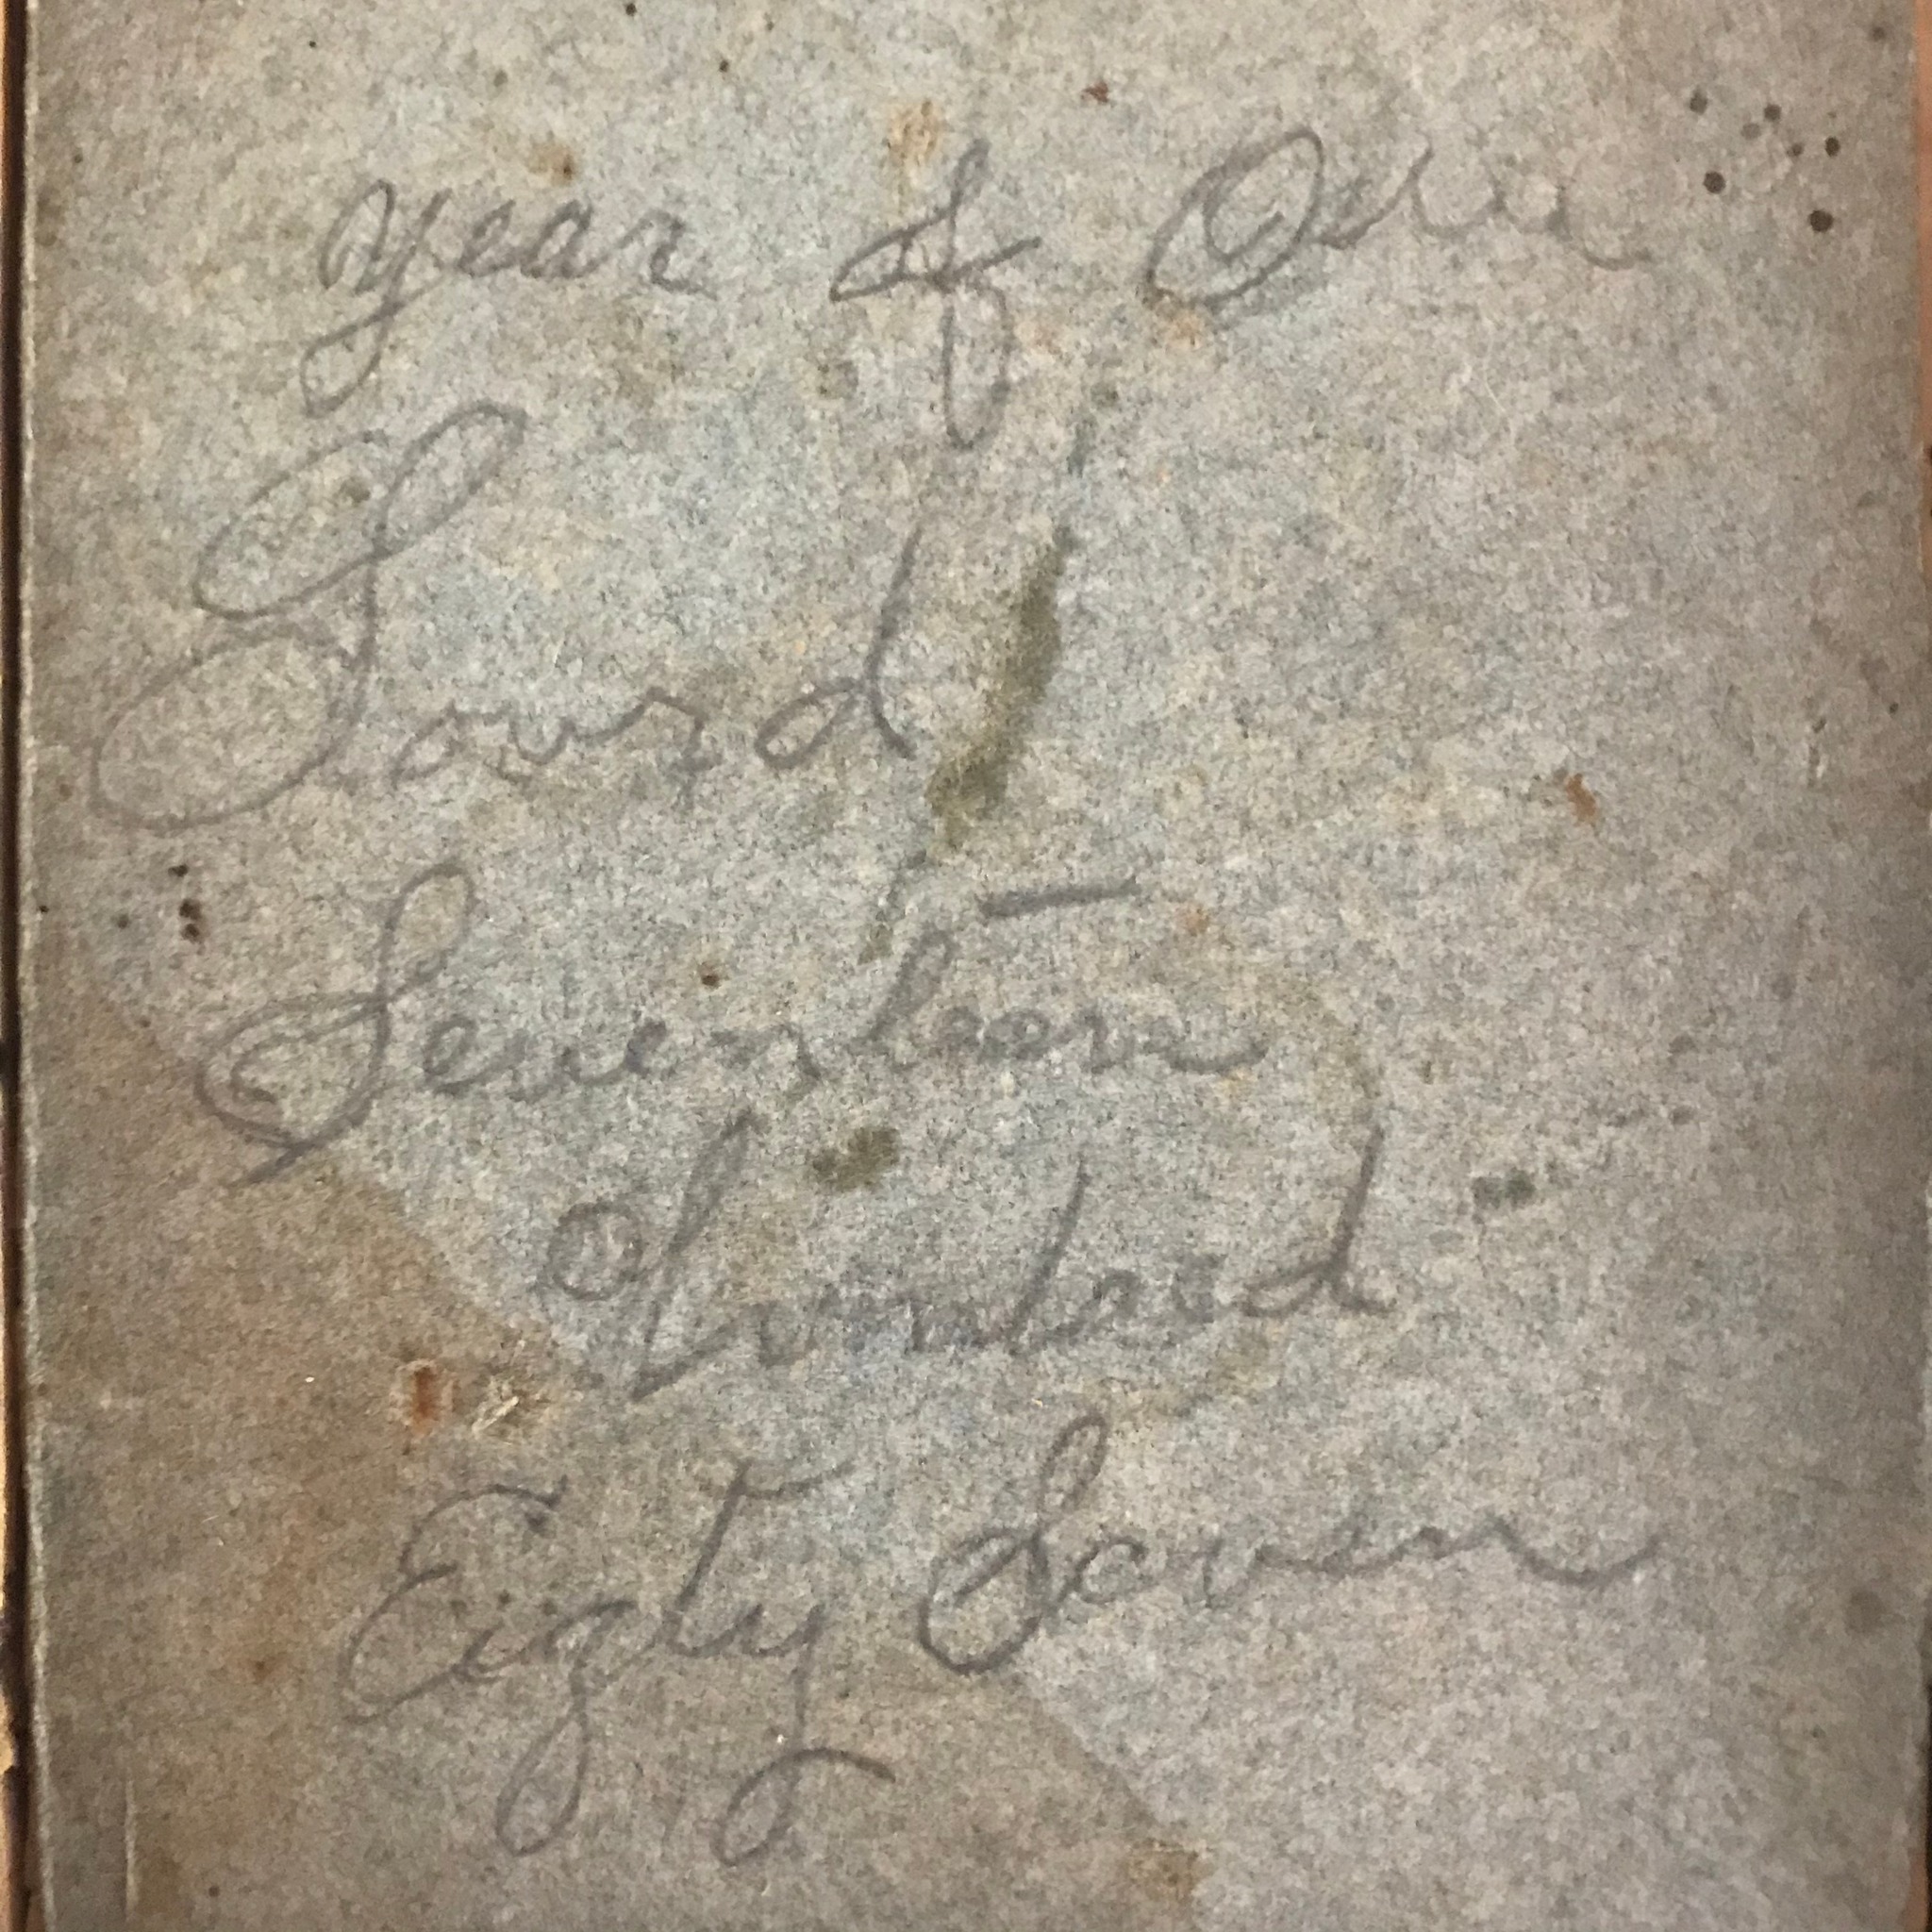 year of Our
Lourd
Seventeen
Hundred
Eigty Seven